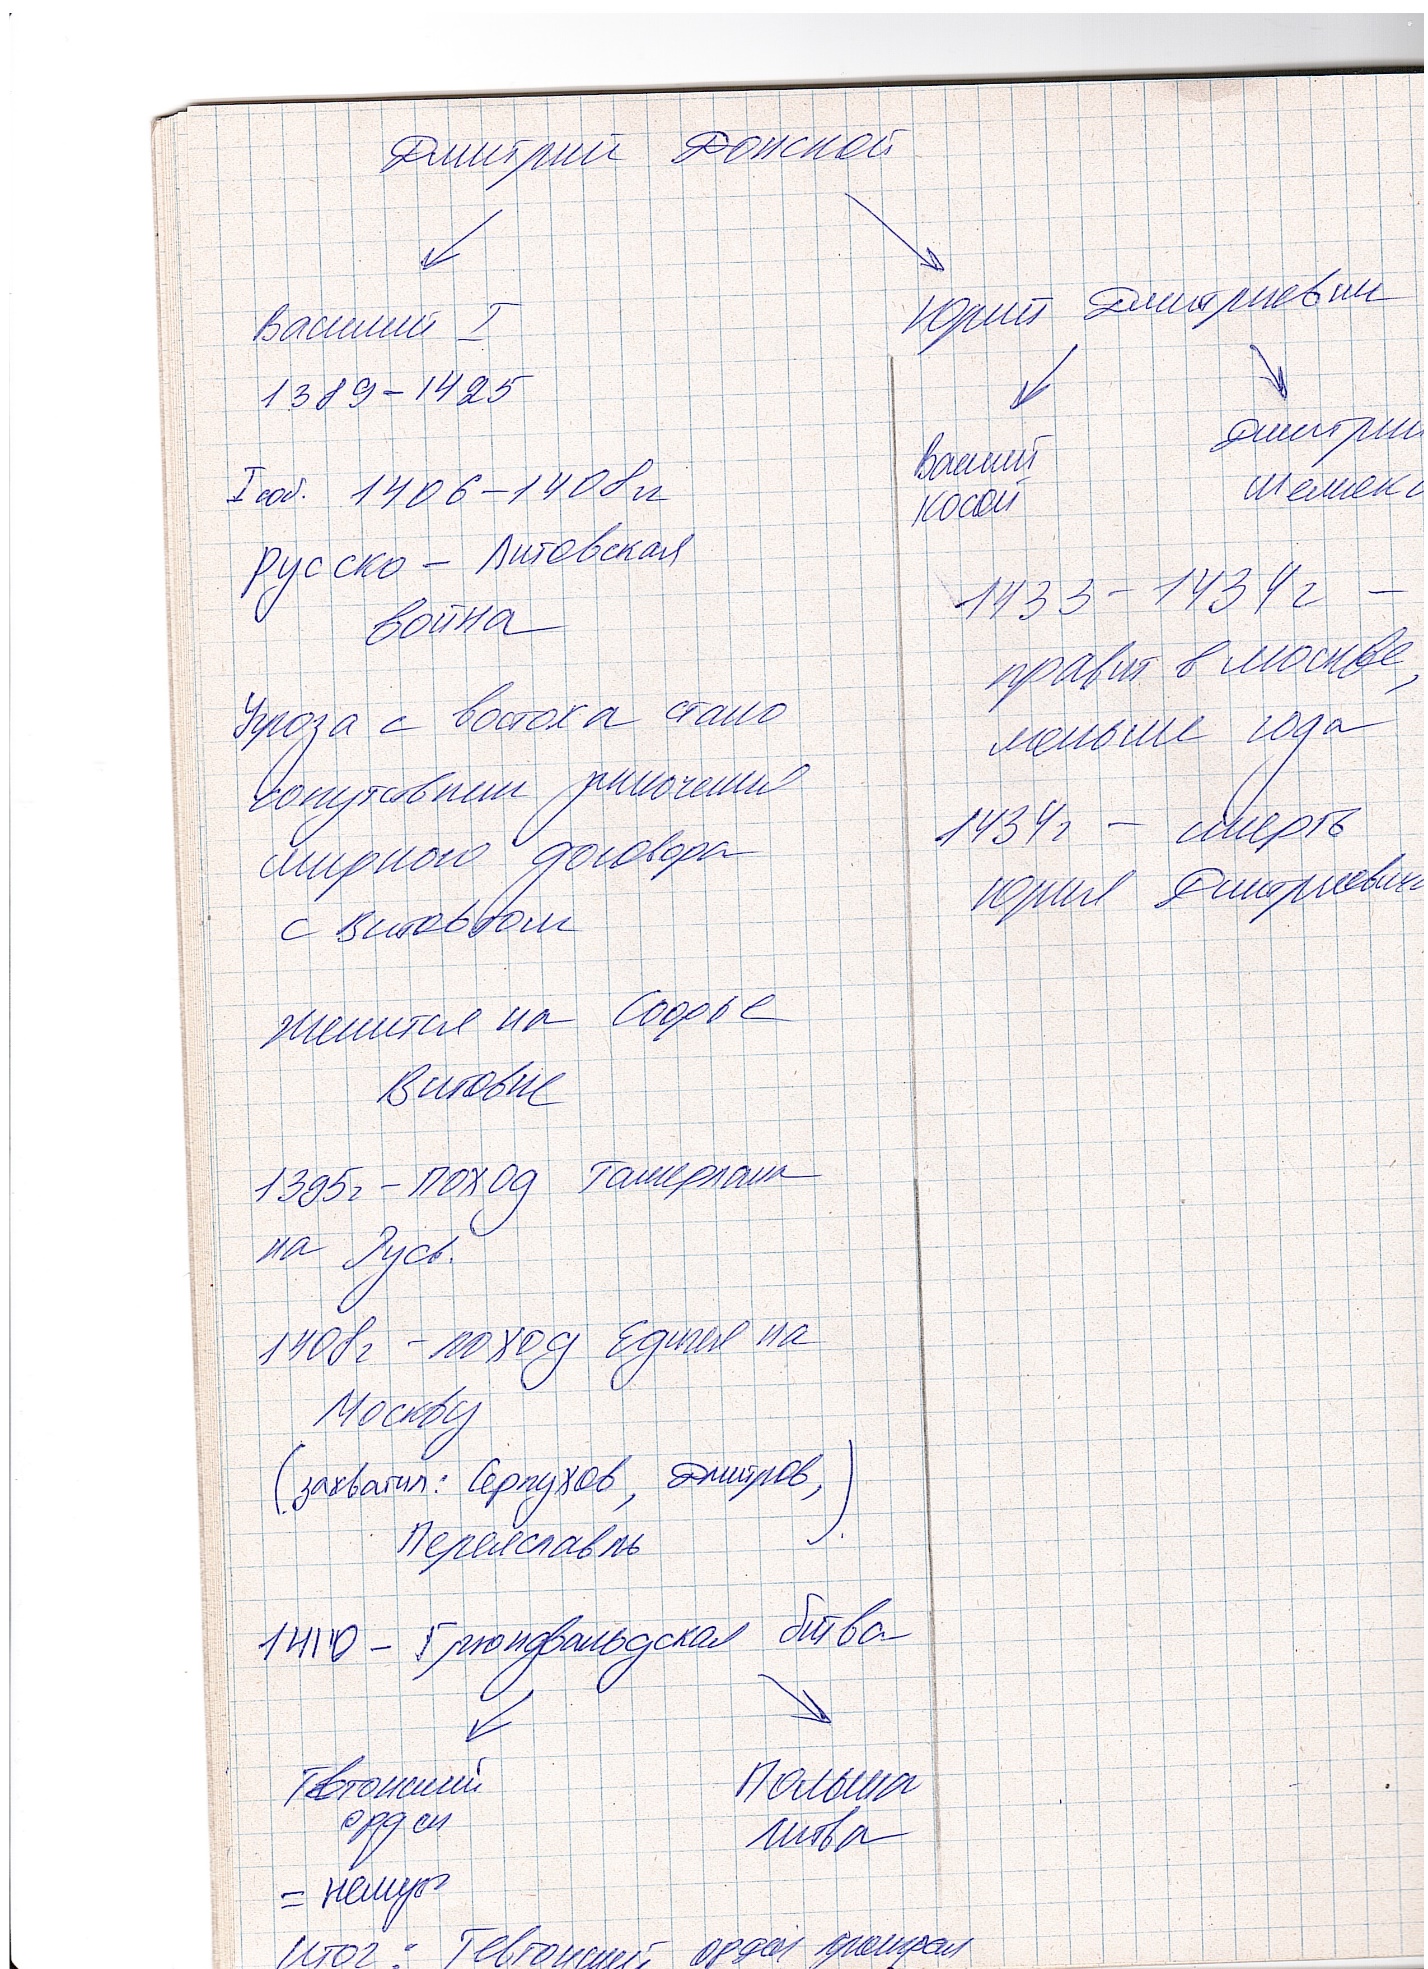 Дмитрий Донской
Василий I
1389-1425
I соб. 1406-1408гг
Русско - Литовская
война
Угроза с востока стало
мирного договора
с Витовтом
Женится на Софье
Витовне
1395г - поход Тамерлана
на Русь.
1408г - поход Едигея на
Москву
(захватил: Серпухов, Дмитров,
Переяславль).
1410 - Грюндвальдская битва
Тевтонский
орден
= немцы
Польша
Литва
Итог: Тевтонский орден проиграл
Юрий Дмитриевич
Василий
Косой
Дмитрий
Шемяка
1433-1434г -
правит в Москве,
меньше года
1434г - смерть
Юрия Дмитриевича